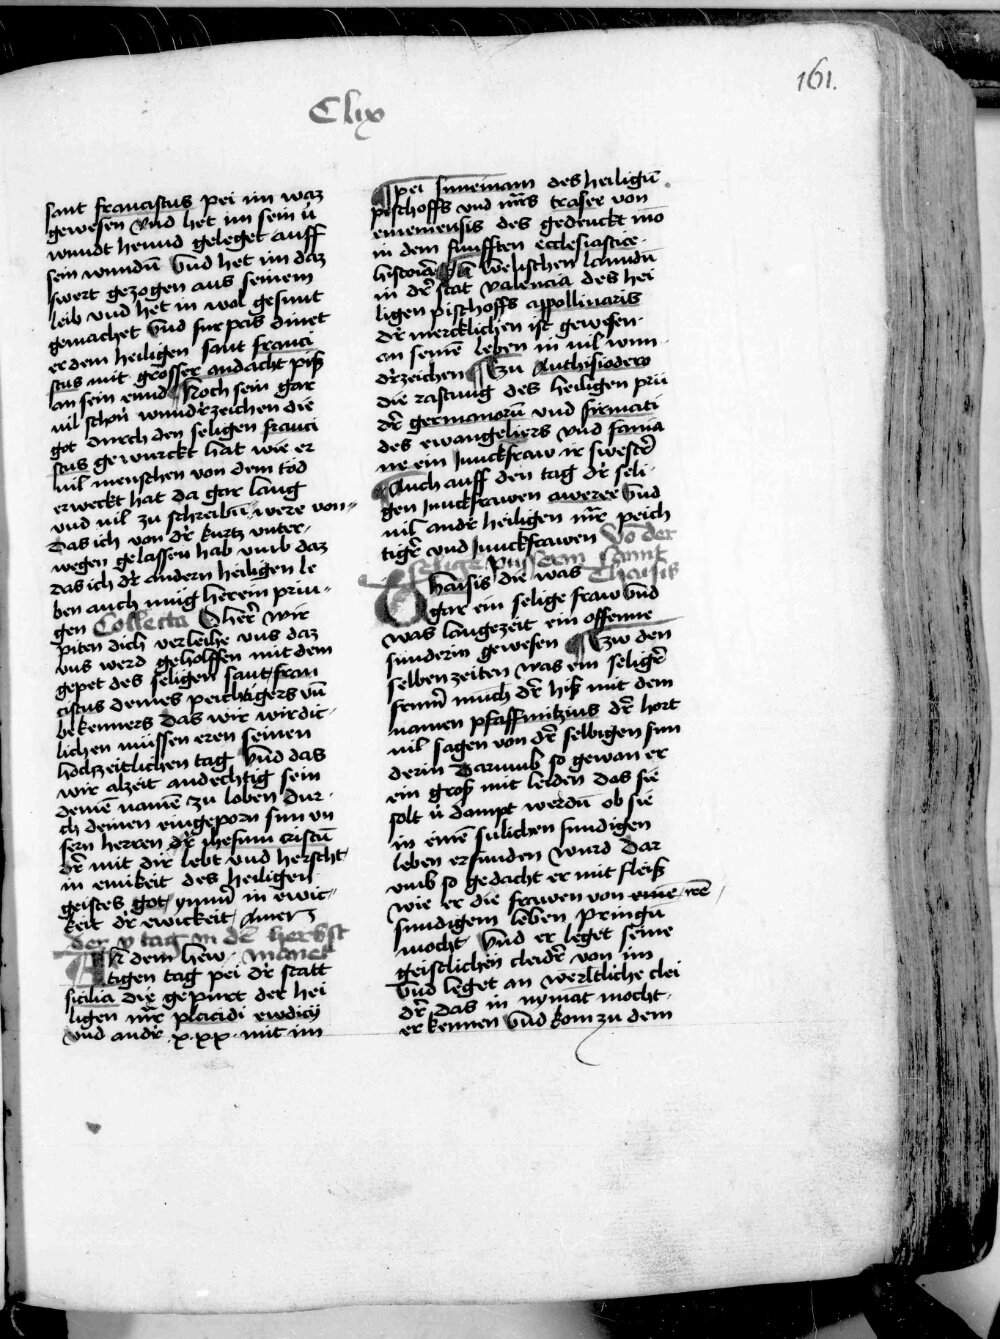 161.
Clix
sant franciscus pei im waz
gewesen Vnd het im sein v̈
wundt hennd geleget auff
sein wundn̄ Vnd het im daz
swert gezogen aus seinem
leib vnd het in wol gesunt
gemachet Vnd fur pas dinet
er dem heiligen sant franci
scus mit grosser andacht piß
an sein ennd Noch sein gar
uil schon̄ wundr̄zeichen die
got durch den seligen franci
scus gewurckt hat wie er
uil menschen von dem tod
erweckt hat da gar lang
vnd uil zu schreibn̄ were von
Das ich von dr̄ kurtz vnter
wegen gelassen hab vmb daz
das ich dr̄ andern heiligen le
ben auch mug herein prin
gen Collecta O herr̄ wir
piten dich verleihe vns daz
vns werd geholffen mit dem
gepet des seligen sant fran
ciscus deines peichtigers vn̄
bekenners Das wir wirdic
lichen mussen eren seinen
hochzeitlichen tag Vnd das
wir alzeit andechtig sein
deinē namē zu loben Dur
ch deinen eingeporn sun vn
sern herren dr̄ ihesum cristū
dr̄ mit dir lebt vnd herscht
in einikeit des heiligen
geistes got ymmr̄ in ewic
keit dr̄ ewickeit Amen
der v tag in dē herbst
An dem hew manet
tigen tag pei dr̄ statt
sicilia die gepurt der hei
ligen mr̄ placidi ewdicij
vnd andr̄ x·xx· mit im
pei sinneniam des heiligū
pischoffs vnd mr̄s trasee von
eumeniensis des gedenckt mō
in dem funfften ecclesiastice
historiā In welischen lanndn̄
in dr̄ stat valencia des hei
ligen pischoffs appollinaris
dr̄ mercklichen ist gewesen
an seinē leben in uil wun
dr̄zeichen Zu Anthisiodero
die rastung des heiligen prū
dr̄ germanorū vnd firmati
des ewangeliers vnd fauia
ne ein Junckfraw ir swestr̄
Auch auff den tag dr̄ seli
gen Junckfrawen aweree Vnd
uil andr̄ heiligen mr̄r peich
tigr̄ vnd Junckfrawen Vō der
selige pusserin sannt
Thaisis die was Thaisis
gar ein selige fraw Vnd
was langezeit ein offenne
sunderin gewesen Zw den
selben zeiten was ein seligr̄
frum̄ munch dr̄ hiß mit dem
namen pfaffnitzius dr̄ hort
uil sagen von dr̄ selbigen sun
derin Darumb so gewan er
ein groß mit leiden das sie
solt v̈ dampt werdn̄ ob sie
in einē sulichen sundigen
leben erfunden wurd Dar
vmb so gedacht er mit fleiß
wie er die frawen von eine irē
sundigem leben pringn̄
mocht Vnd er leget seine
geistlichen cleidr̄ von im
Vnd leget an werltliche clei
dr̄ das in nymat mocht
erkennen Vnd kom zu dem